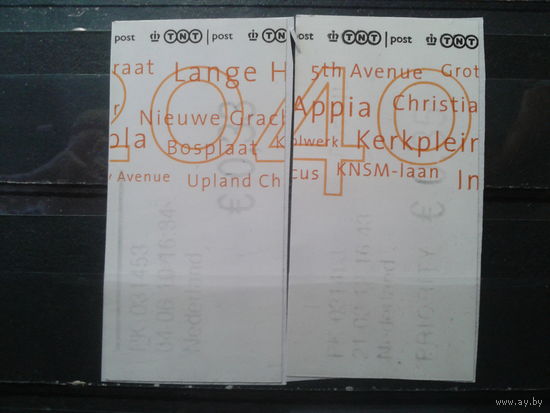 post TNT | post
raat Lange H
Nieuwe Grach
ola Bosplaat
y Avenue Upland Ch
€ 0,39
PK 031453
Nederland
TNT | post TNT
5th Avenue Grot
Appia Christia
Kolwerk Kerkplein
cus KNSM-laan In
2040
Nederland
PRIORITY €
www.ay.by